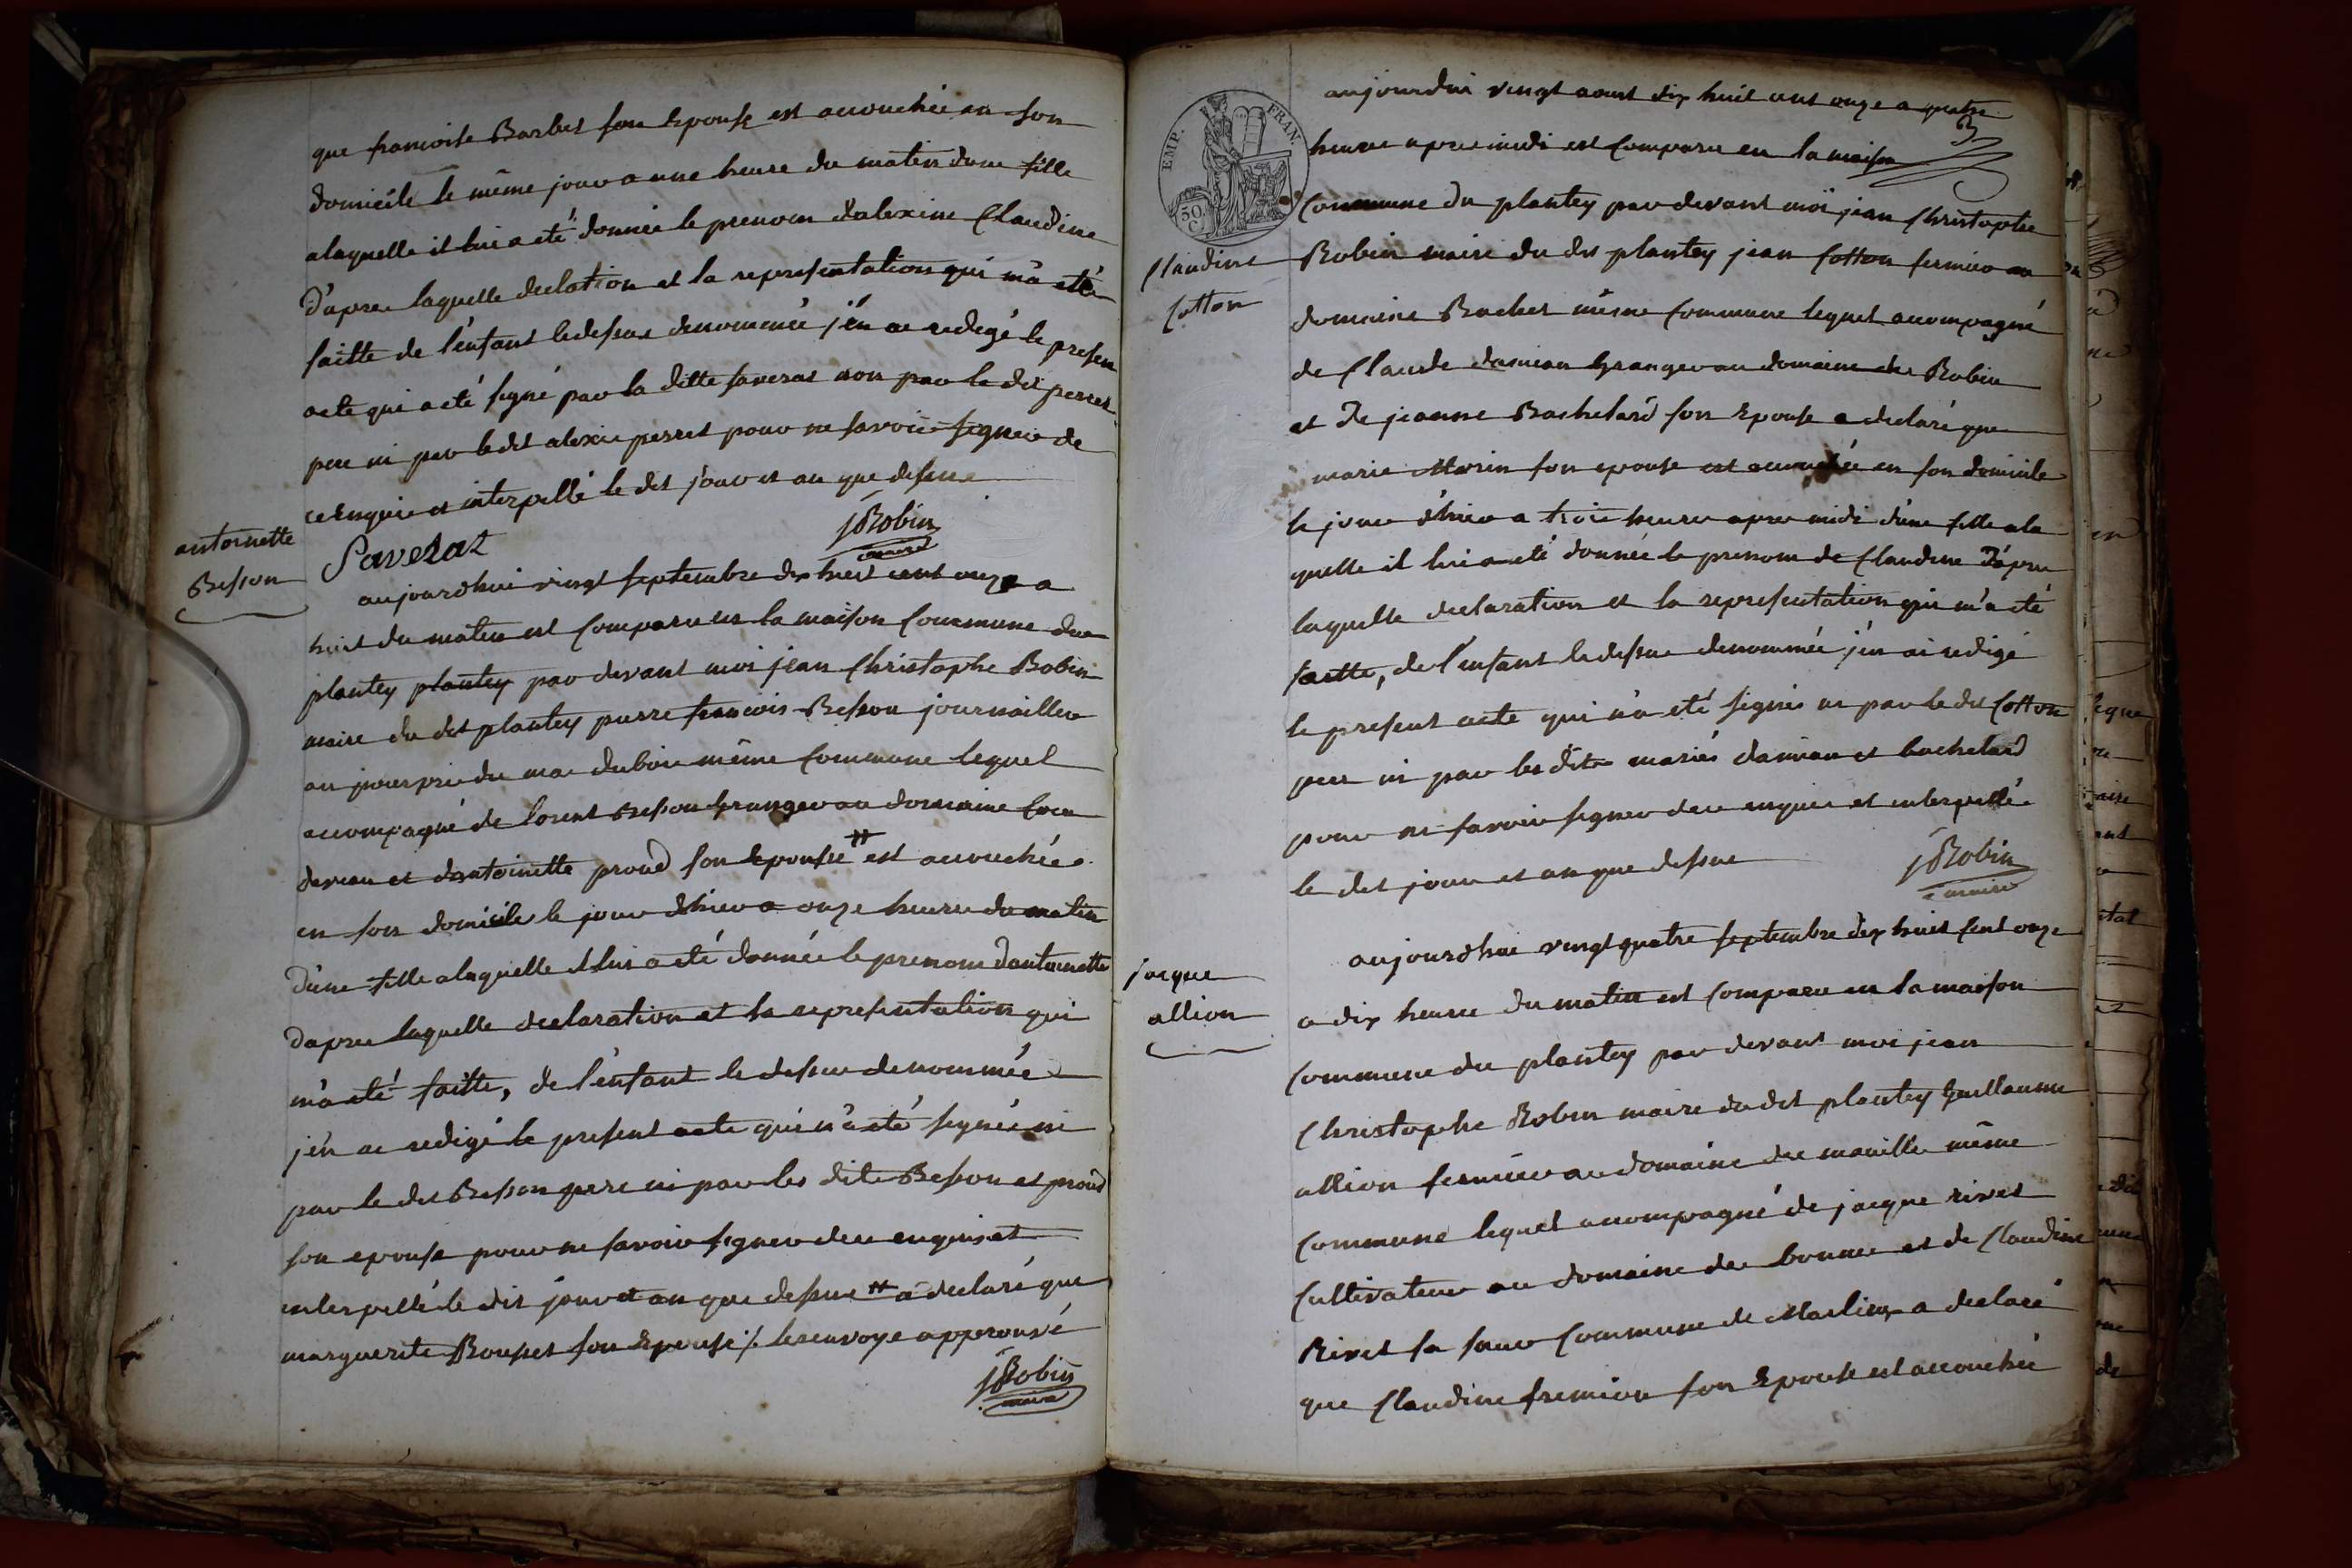 que francoise Barbet son Epouse est accouchée en son
domicile le même jour a une heure du matin dune fille
alaquelle il lui a été donnée le prenom dalexine Claudine
D'apres laquelle declation et la representation qui m'a eté
faitte de l'enfant ledessus denommée j'en ai redigé le presen
acte qui a eté signé par la ditte Saverat non par le dit perret
pere ni par ledit alexis perret pour ne savoir signer de
ce Enquis et interpellé le dit jour et an que dessus
Saverat
JRobin
maire
antoinette
Besson
aujourdhui vingt septembre dix huit cent onze a
huit du matin est Comparu en la maison Commune du
plantey plantey par devant moi jean Christophe Robin
maire du dit plantey pierre francois Besson journaillier
au du mas dubois même Commune lequel
accompagné de lorent Besson Granger au domaine
et dantoinette proud son Epouse # est accouchée
en son domicile le jour dhier a onze heure du matin
d'une fille alaquelle il lui a eté donnée le prenom dantoinette
Dapres laquelle declaration et la representation qui
m'a eté faitte, de l'enfant le dessus denommée
j'en ai redigé le present acte qui n'a eté signé ni
par le dit Besson pere ni par les dits Besson et proud
son epouse pour ne savoir signer de ce enquis et
interpellé le dit jour et an que dessus # a declaré que
marguerite Bouset son Epouse /. le renvoye approuvé
JRobin
maire
EMP. FRAN.
50 C
aujourdui vingt aoust dix huit cent onze a quatre
heure apres midi est Comparu en la maison
Commune du plantey par devant moi jean Christophe
Claudine
Cotton
Robin maire du dit plantey jean Cotton fermier au
domaine Bachet même Commune lequel accompagné
de Claude damian Granger au domaine des Robin
et de jeanne Bachelard son Epouse a declaré que
marie Morin son epouse est accouchée en son domicile
le jour d'hier a trois heure apres midi d'une fille ala
quelle il lui a eté donnée le prenom de Claudine D'apres
laquelle declaration et la representation qui m'a eté
faitte, de l'enfant ledessus denommée j'en ai redigé
le present acte qui n'a eté signés ni par le dit Cotton
pere ni par les dits mariés damian et bachelard
pour ne savoir signer de ce enquis et interpellé
le dit jour et an que dessus
JRobin
maire
jacque
allion
aujourdhui vingt quatre septembre dix huit cent onze
a dix heure du matin est Comparu en la maison
Commune du plantey par devant moi jean
Christophe Robin maire du dit plantey Guillaume
allion fermier au domaine du mouille même
Commune lequel accompagné de jacque rivet
Cultivateur au domaine des bonnes et de Claudine
Rivet sa soeur Commune de Marlieux a declaré
que Claudine fremion son Epouse est accouchée